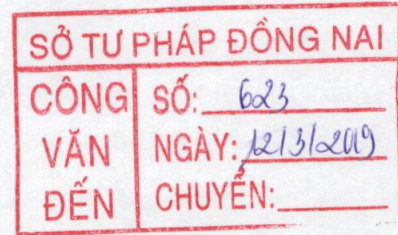 SỞ TƯ PHÁP ĐỒNG NAI
CÔNG
VĂN
ĐẾN
SỐ: 623
NGÀY: 12/3/2019
CHUYỂN: